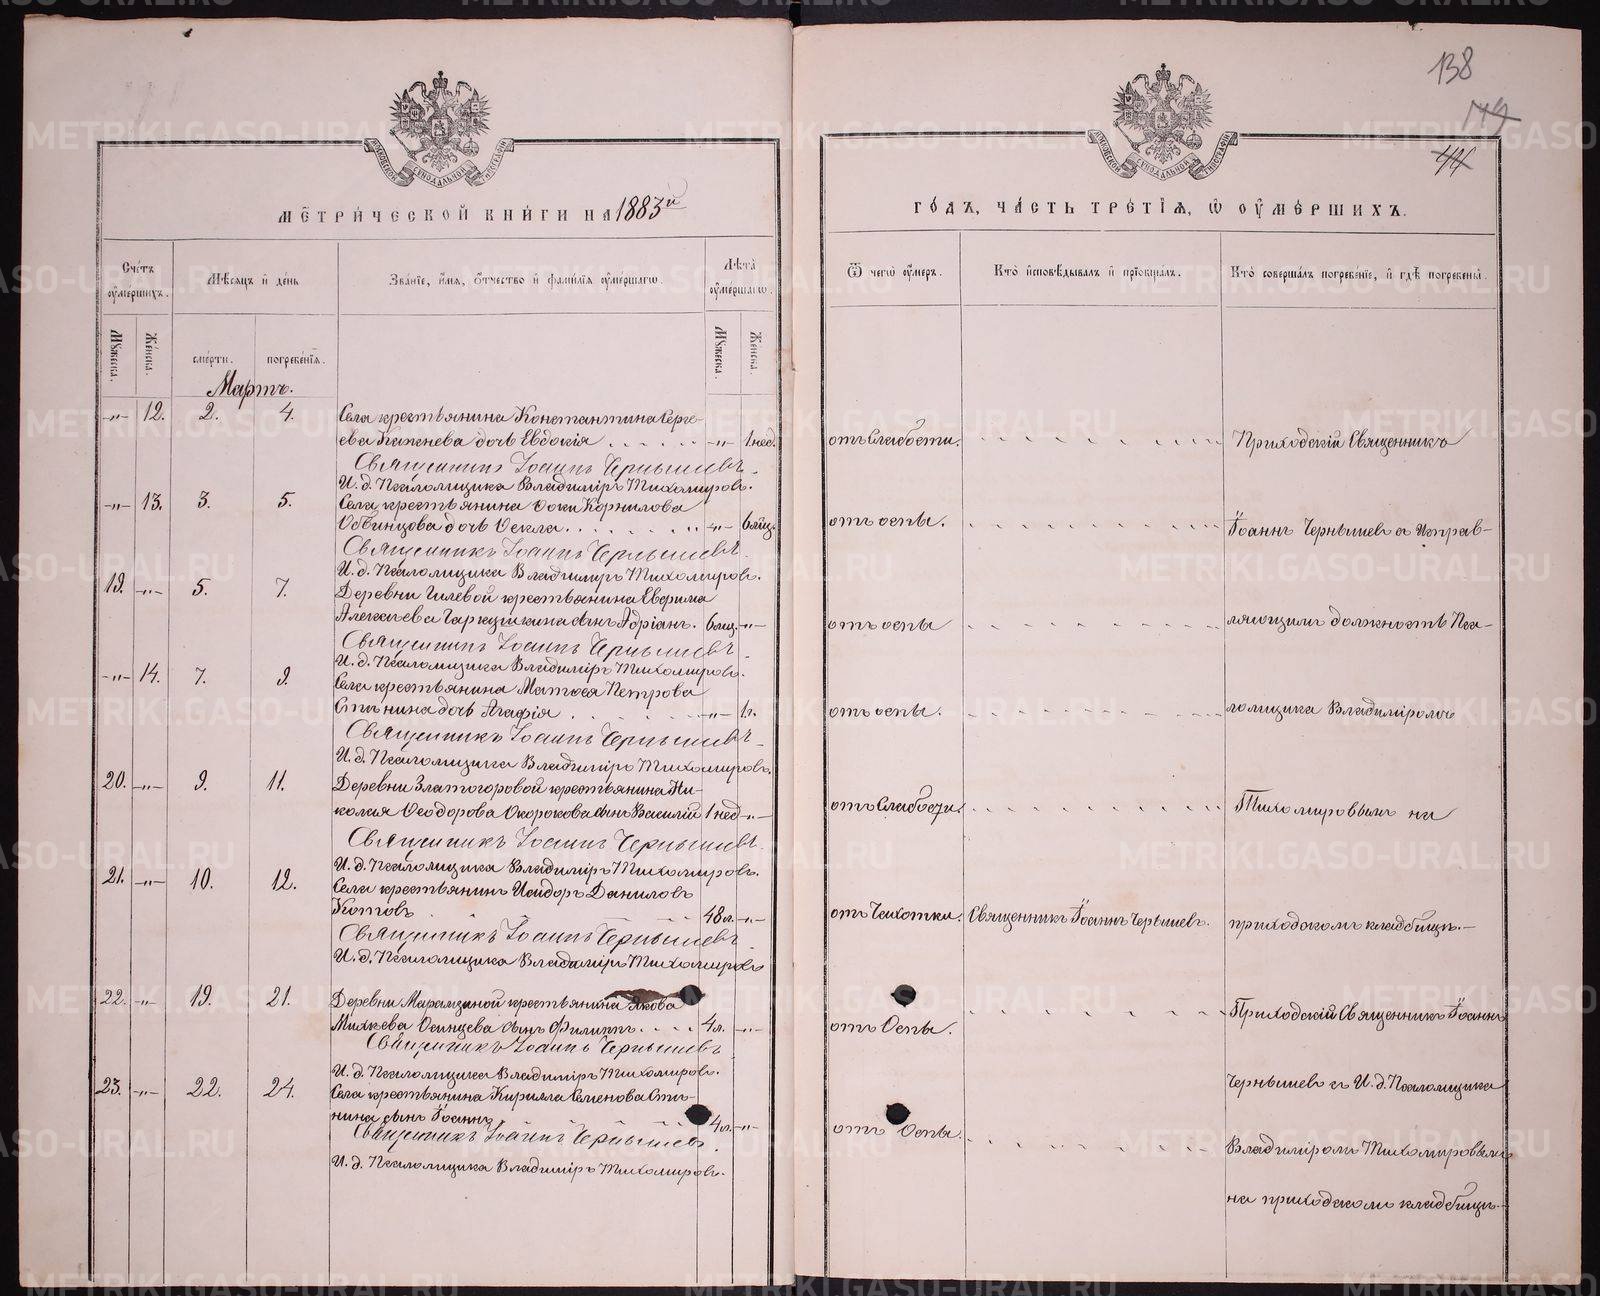 138
МЕТРИЧЕСКОЙ КНИГИ НА 1883й
ГОДЪ, ЧАСТЬ ТРЕТІЯ, Ѡ ОУМЕРШИХЪ.
Счетъ оумершихъ.
Мѣсяцъ и день
Званіе, имя, отчество и фамилія оумершагѡ.
Лѣта оумершагѡ.
Ѿ чегѡ оумеръ.
Кто исповѣдывалъ и пріобщалъ.
Кто совершалъ погребеніе, и гдѣ погребены.
Мужеска.
Женска.
смерти.
погребенія.
Мужеска.
Женска.
Мартъ.
-„- 12. 2. 4. Села крестьянина Константина Серге-
ева Капенева дочь Евдокія -„- 1 нед. отъ Слабости. Приходскій Священникъ
Священникъ Іоаннъ Чернышевъ.
И. д. Псаломщика Владиміръ Тихомировъ.
-„- 13. 3. 5. Села крестьянина Фоки Корнилова
Обвинцова дочь Фекла. -„- 6 мѣц. отъ оспы. Іоаннъ Чернышев съ Исправ-
Священникъ Іоаннъ Чернышевъ.
И. д. Псаломщика Владиміръ Тихомировъ.
19. -„- 5. 7. Деревни Гилевой крестьянина Евфима
Алексѣева Гаркушкина сынъ Адріанъ. 6 мц. -„- отъ оспы ляющимъ должность Пса-
Священникъ Іоаннъ Чернышевъ.
И. д. Псаломщика Владиміръ Тихомировъ.
-„- 14. 7. 9. Села крестьянина Матѳея Петрова
Стѣнина дочь Агафія -„- 1 г. отъ оспы. ломщика Владиміромъ
Священникъ Іоаннъ Чернышевъ.
И. д. Псаломщика Владиміръ Тихомировъ.
20. -„- 9. 11. Деревни Златогоровой крестьянина Ни-
колая Ѳеодорова Окорокова сынъ Василій 1 нед -„- отъ Слабости. Тихомировымъ на
Священникъ Іоаннъ Чернышевъ.
И. д. Псаломщика Владиміръ Тихомировъ.
21. -„- 10. 12. Села крестьянинъ Исидоръ Даниловъ
Котовъ 48 л. -„- отъ Чахотки. Священникъ Іоаннъ Чернышевъ. приходскомъ кладбищѣ.-
Священникъ Іоаннъ Чернышевъ
И. д. Псаломщика Владиміръ Тихомировъ
22. -„- 19. 21. Деревни Марамзиной крестьянина Якова
Михѣева Осинцева сынъ Филиппъ. 4 л. -„- отъ Оспы. Приходскій Священникъ Іоаннъ
Священникъ Іоаннъ Чернышевъ
И. д. Псаломщика Владиміръ Тихомировъ. Чернышев съ И. д. Псаломщика
23. -„- 22. 24. Села крестьянина Кирилла Семенова Стѣ-
нина сынъ Іоаннъ 4 л. -„- отъ Оспы.
Священникъ Іоаннъ Чернышевъ. Владиміромъ Тихомировымъ
И. д. Псаломщика Владиміръ Тихомировъ.
на приходскомъ кладбищѣ.-
METRIKI.GASO-URAL.RU